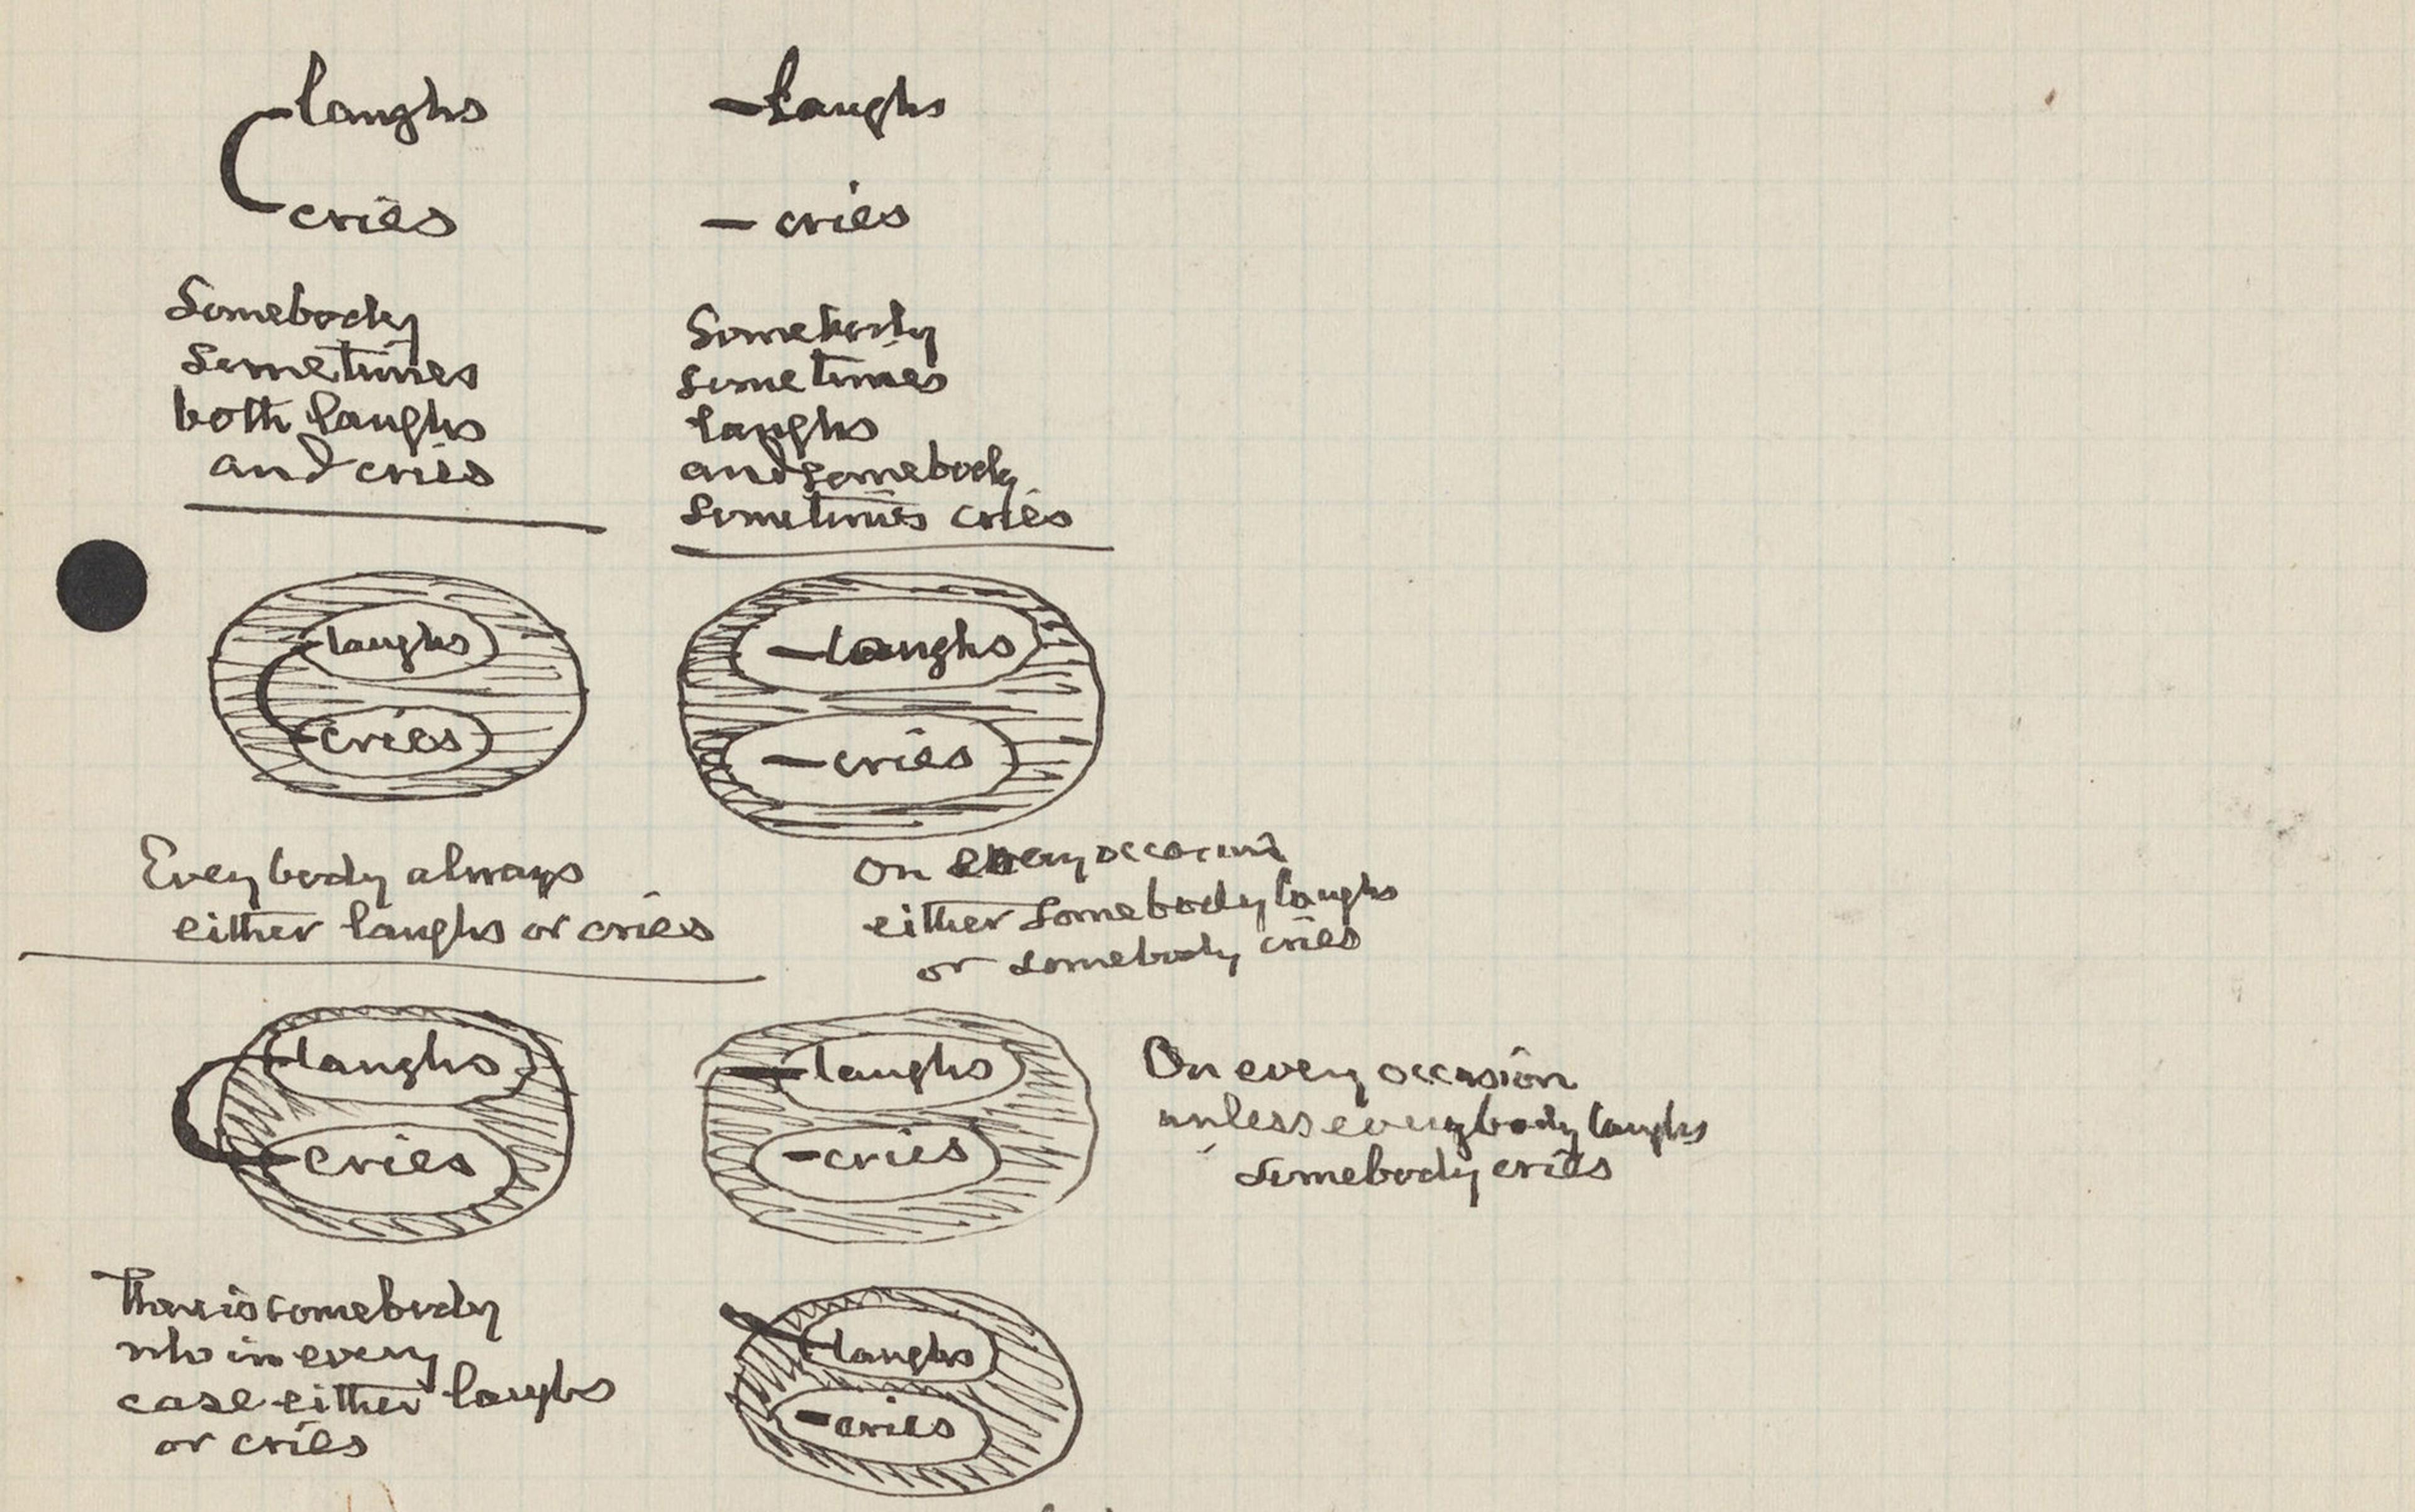 laughs
cries
Somebody
sometimes
both laughs
and cries
laughs
cries
Somebody
sometimes
laughs
and somebody
sometimes cries
laughs
cries
Everybody always
either laughs or cries
laughs
cries
On every occasion
either somebody laughs
or somebody cries
laughs
cries
There is somebody
who in every
case either laughs
or cries
laughs
cries
On every occasion
unless everybody laughs
somebody cries
laughs
cries